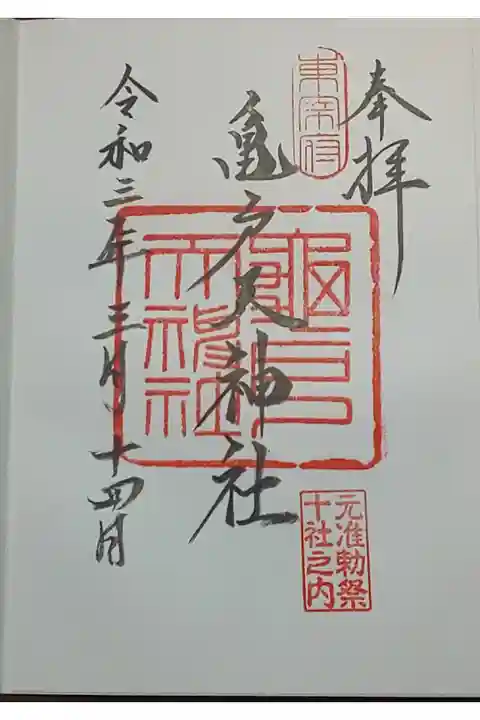 奉拝
東宰府
亀戸天神社
亀戸天神社
元准勅祭
十社之内
令和三年三月十四日